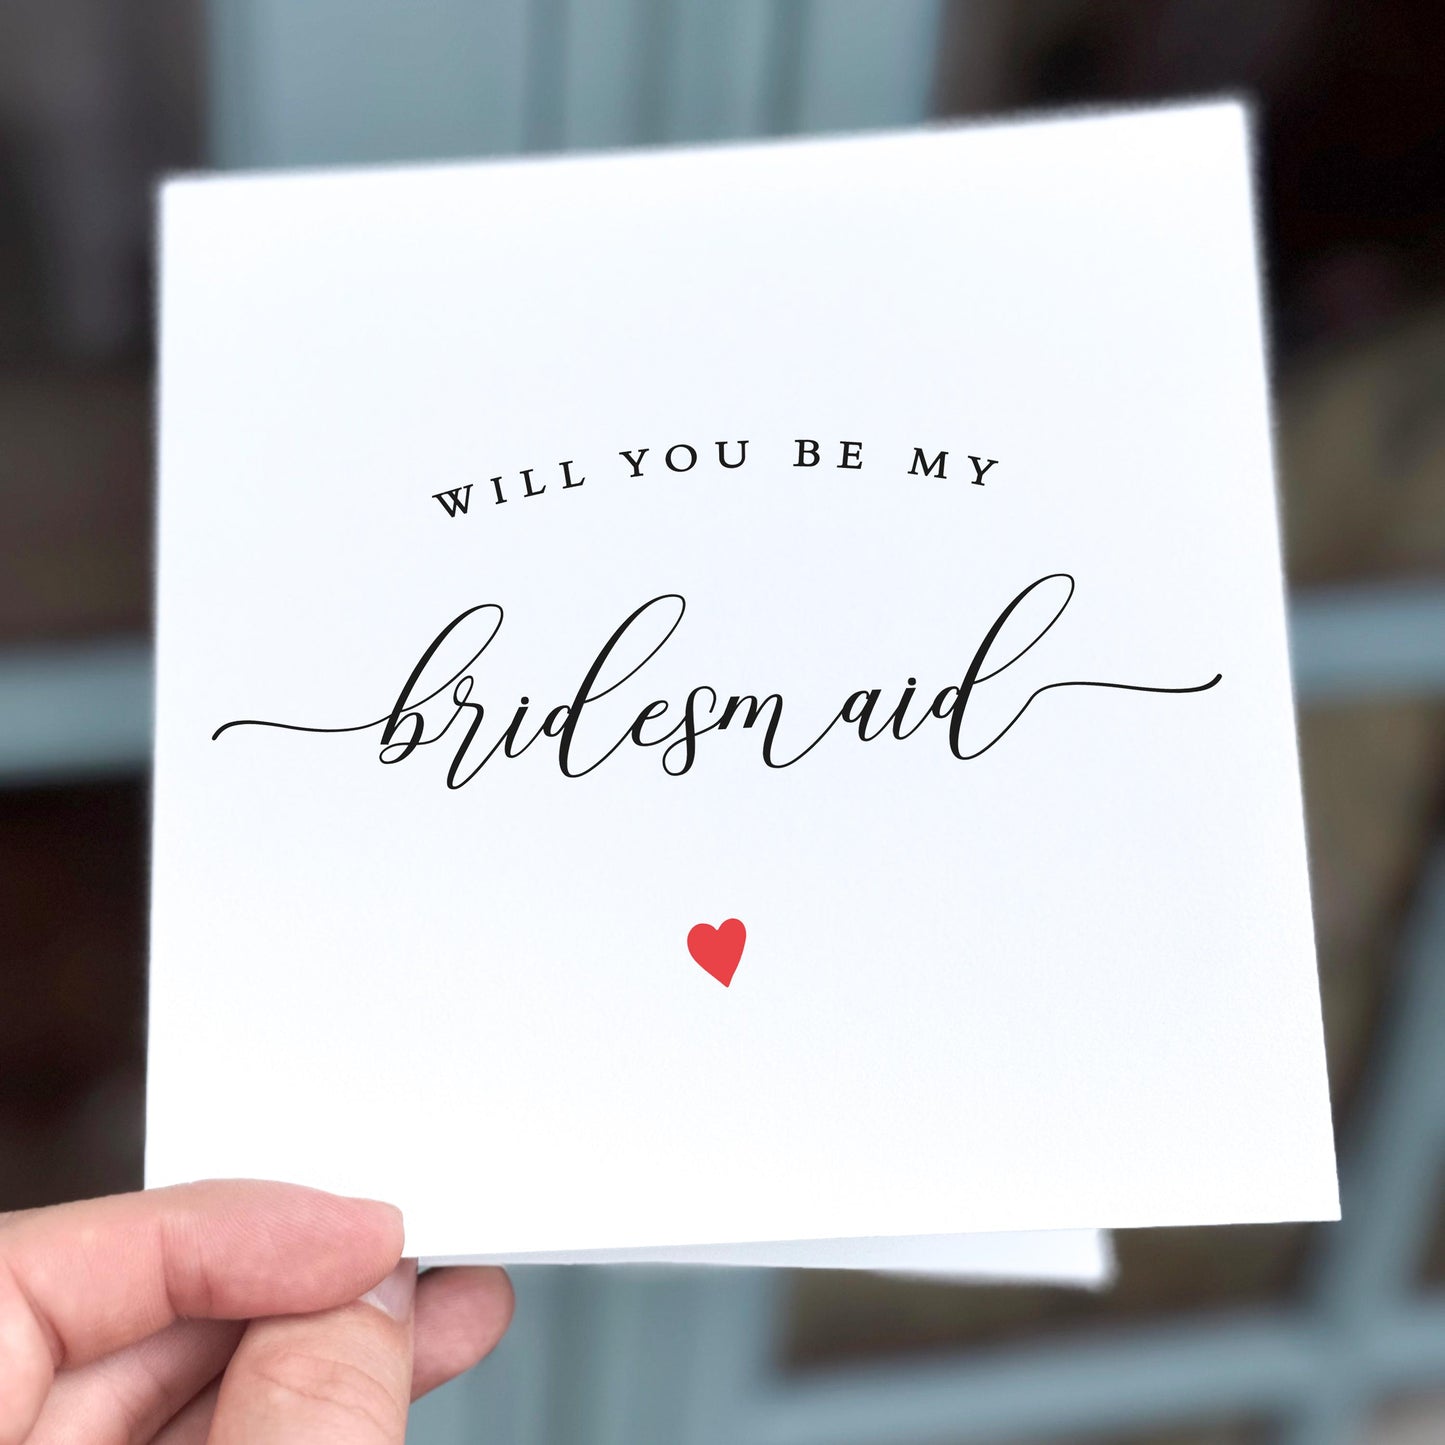 WILL YOU BE MY
bridesmaid